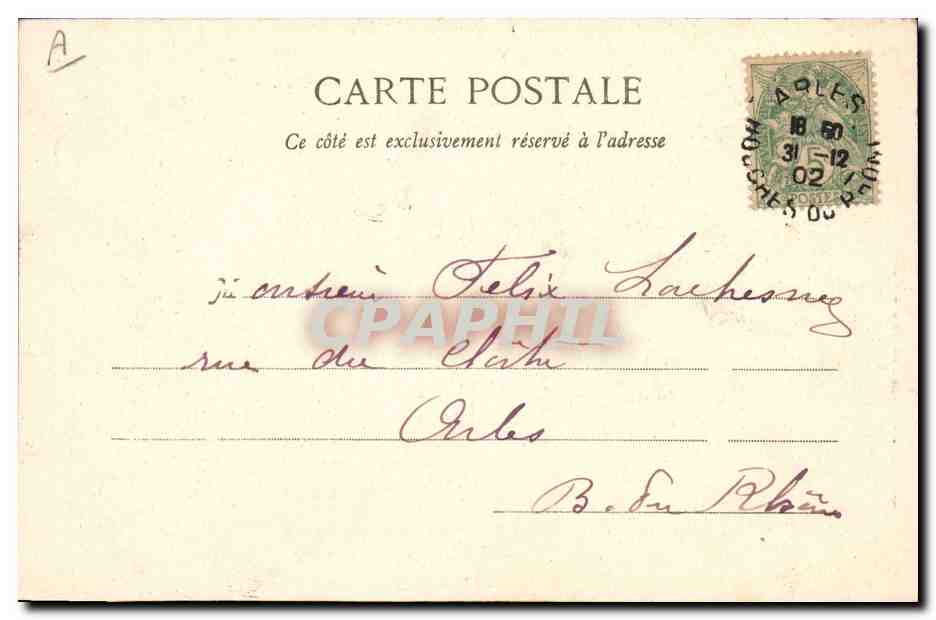 A
CARTE POSTALE
Ce côté est exclusivement réservé à l'adresse
ARLES
18 50
31 -12
02
BOUCHES DU RHONE
5
POSTES
Monsieur Félix Lachesnez
CPAPHIL
rue du Cloître
Arles
B. du Rhône